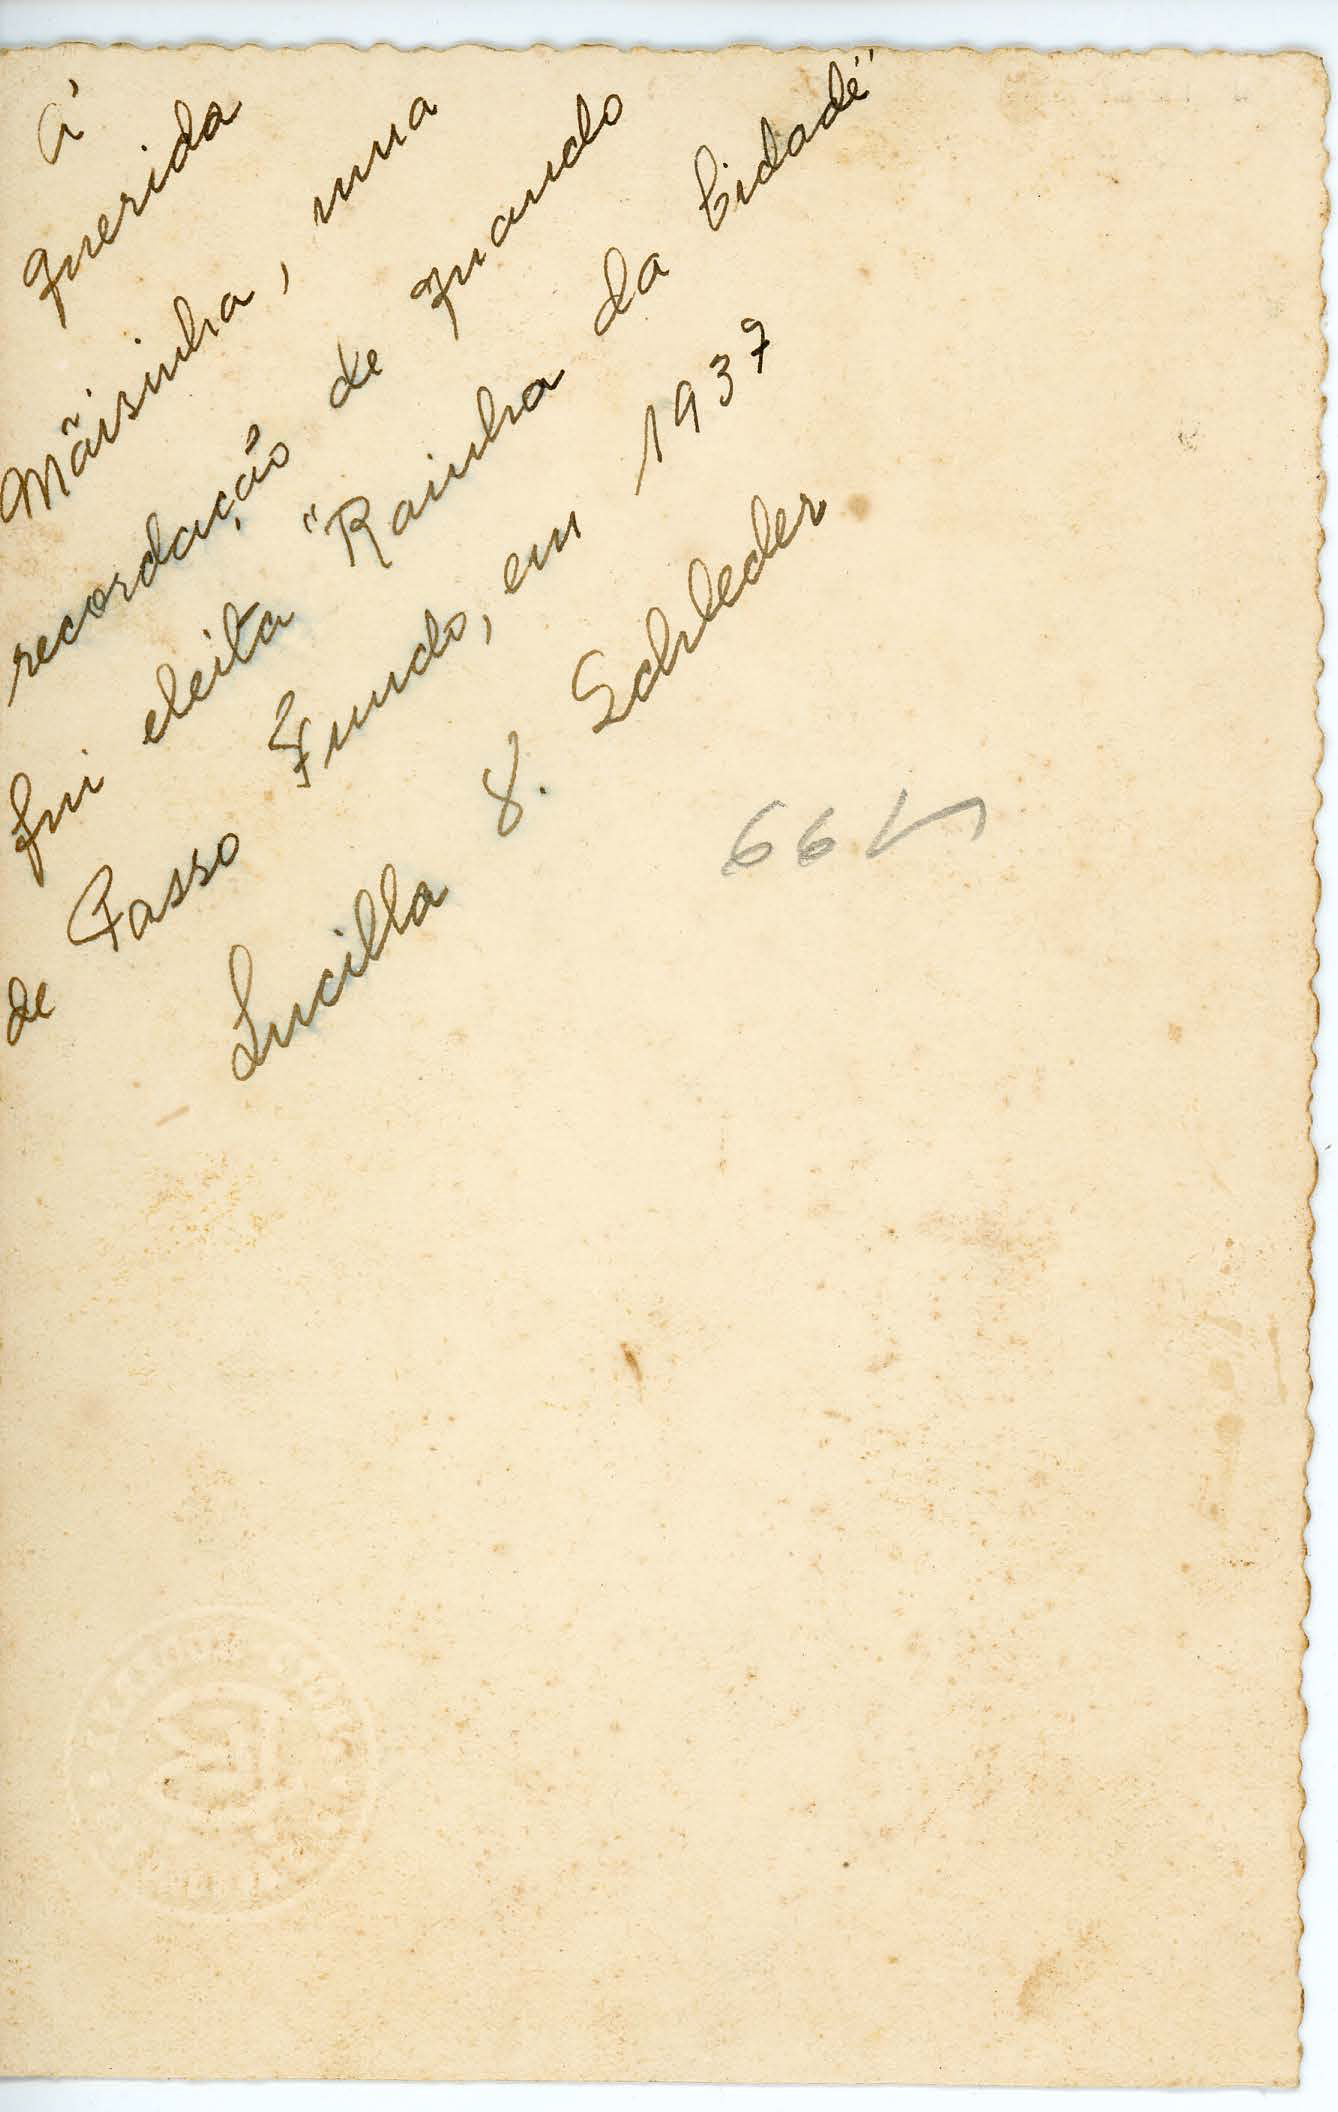 Á
querida
Mãisinha, uma
recordação de quando
fui eleita "Rainha da Cidade"
de Passo Fundo, em 1937
Lucilla S. Schleder
66